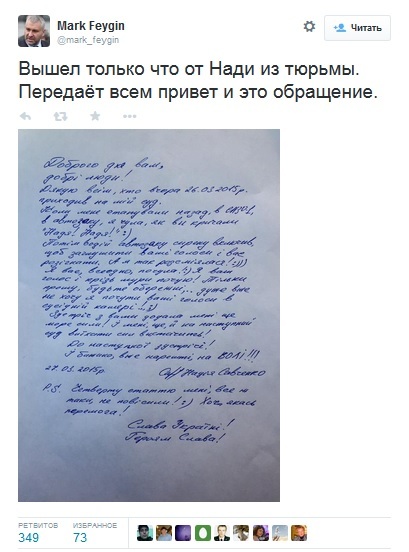 Mark Feygin
@mark_feygin
Читать
Вышел только что от Нади из тюрьмы.
Передаёт всем привет и это обращение.
Доброго дня вам,
добрі люди!
Дякую всім, хто вчора 26.03.2015р.
приходив на мій суд.
Коли мене етапували назад, в СИЗО1,
в автозаку, я чула, як ви кричали
"Надя! Надя!" :)
Потім водій автозаку сирену
щоб заглушити ваші голоси і вас
розігнати, а я так розсміялася! :)))
Я вас, все одно, почула! :) Я ваші
голос і крізь мури почую! Тільки
прошу, будьте обережні... дуже вже
не хочу я почути ваші голоси в
сусідній камері... :)
Зустріч з вами додала мені ще
море сили! І мені, ще й на наступний
суд сил вистачить!
До наступної зустрічі!
І бажаю, вже нарешті, на ВОЛІ!!!
27.03.2015р. Надія Савченко
P.S. Четверту статтю мені, все ж
таки, не повісили! :) Хоч якась
перемога!
Слава Україні!
Героям Слава!
РЕТВИТОВ
349
ИЗБРАННОЕ
73